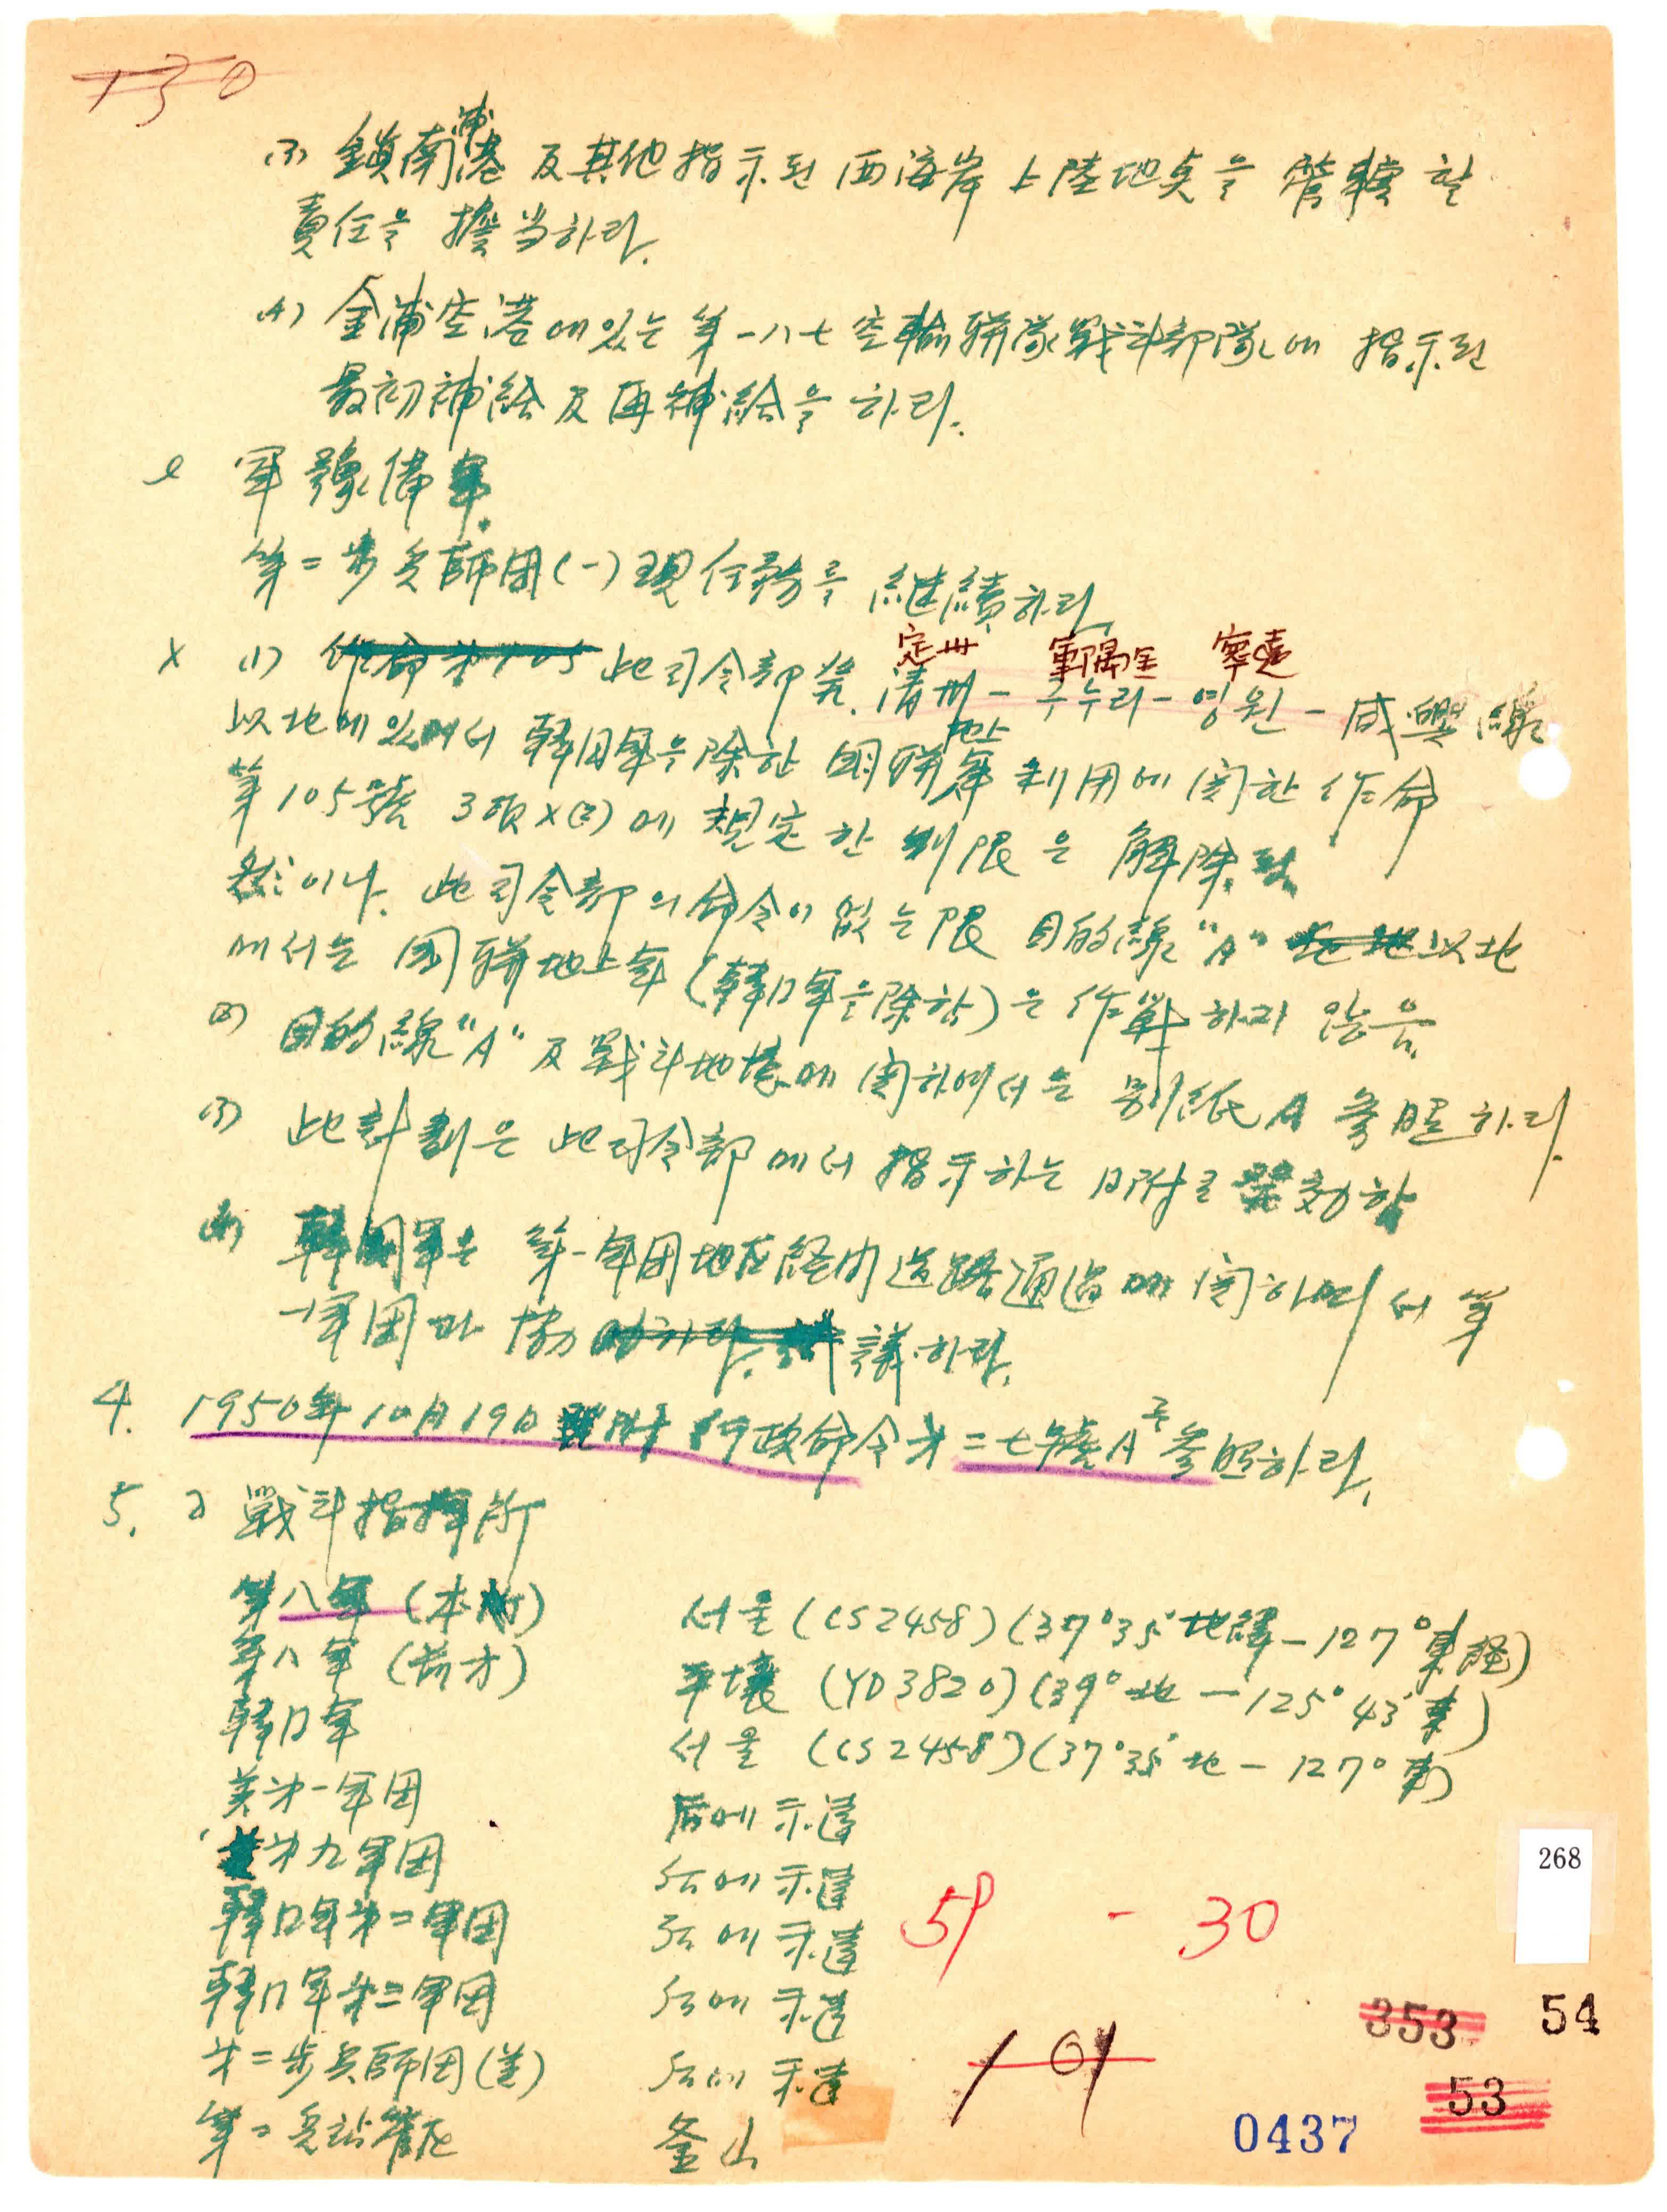 130
(3) 鎭南浦港 及其他 指示된 西海岸 上陸地点을 管轄할
責任을 擔当하라.
(4) 金浦空港에 있는 第一八七空輸聯隊戰斗部隊에 指示된
最初補給 及 再補給을 하라.
l 軍豫備軍
第二步兵師団(一) 現任務를 継續하라
定州 軍隅里 寧遠
X (1) 作命第105 此司令部发. 清州 - 구누리 - 영원 - 咸興線
以北에 있어서 韓国軍을 除한 国聯地上軍 利用에 関한 作命
第105號 3項X(2)에 規定한 制限은 解除됨
然이나. 此司令部의 命令이 없는 限 目的線"A" 以北
에서는 国聯地上軍(韓口軍을 除함)은 作戰하지 않음.
(2) 目的線"A" 及 戰斗地境에 関하여서는 別紙 A 參照하라.
(3) 此計劃은 此司令部에서 指示하는 日附로 發効함
(4) 韓国軍은 第一軍団地区経内 道路通過에 関하여서 第
一軍団과 協議하라.
4. 1950年10月19日附 行政命令 第二七號A를 參照하라.
5. a 戰斗指揮所
第八軍 (本所) 서울 (CS2458)(37°35' 北緯 - 127° 東経)
第八軍 (前方) 平壤 (YD3820)(39° 北 - 125° 43' 東)
韓口軍 서울 (CS2458)(37°35' 北 - 127° 東)
美第一軍団 后에 示達
第九軍団 后에 示達
韓口軍第二軍団 后에 示達
韓口軍第三軍団 后에 示達
第二步兵師団(美) 后에 示達
第二兵站管区 釜山
59 - 30
268
353 54
101
53
0437